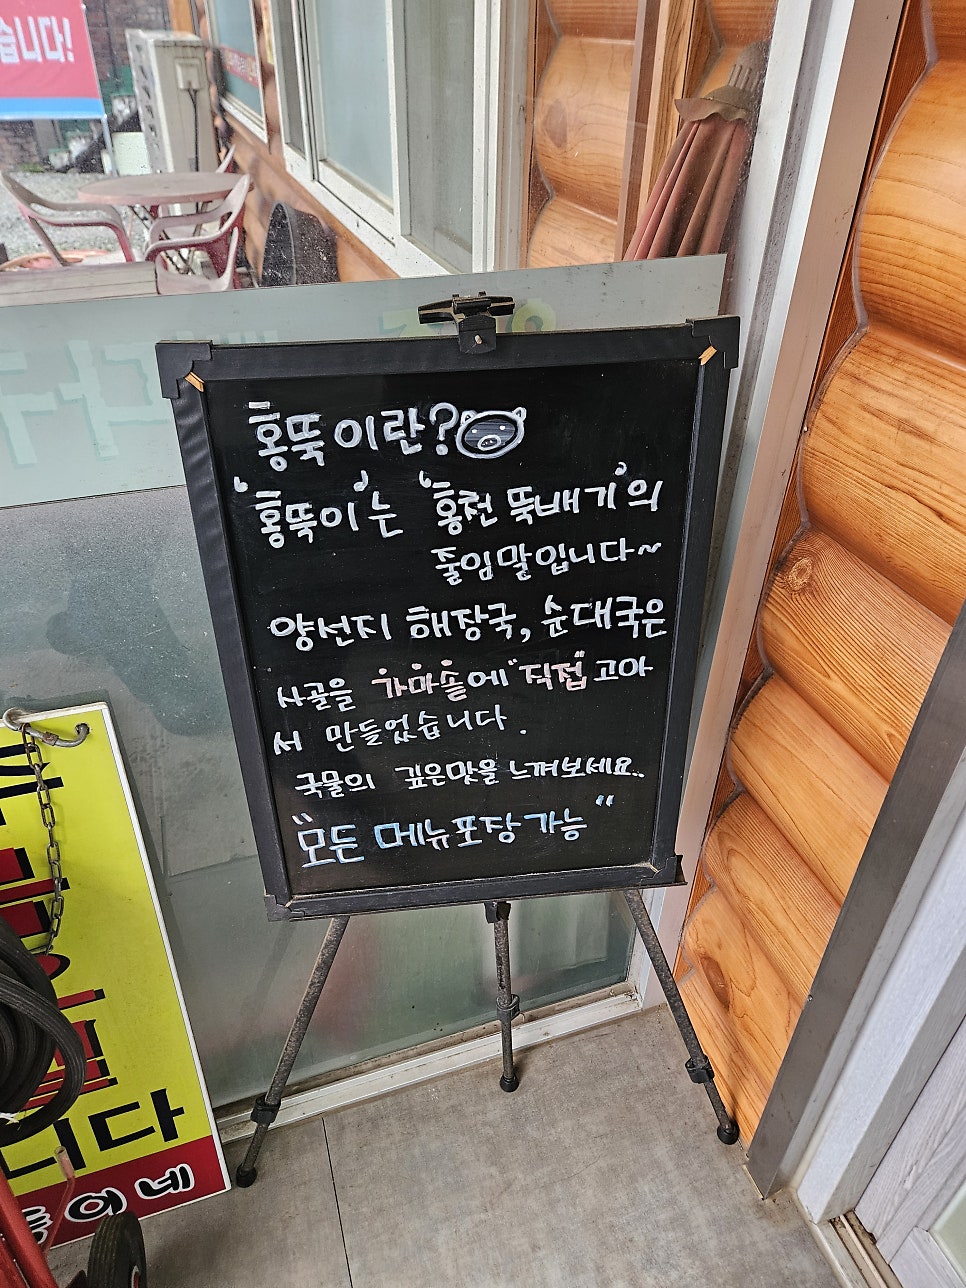 습니다!
홍뚝이란?
'홍뚝이'는 '홍천 뚝배기'의
줄임말입니다~
양선지 해장국, 순대국은
사골을 가마솥에 "직접" 고아
서 만들었습니다.
국물의 깊은맛을 느껴보세요..
"모든 메뉴포장가능"
니다
이네